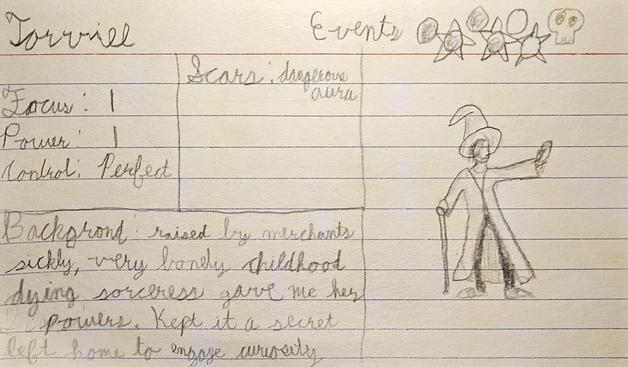 Torriell
Events
Scars: dangerous
aura
Focus: 1
Power: 1
Control: Perfect
Backgrond: raised by merchants
sickly, very lonely childhood
dying sorceress gave me her
powers. Kept it a secret
left home to engage curiosity